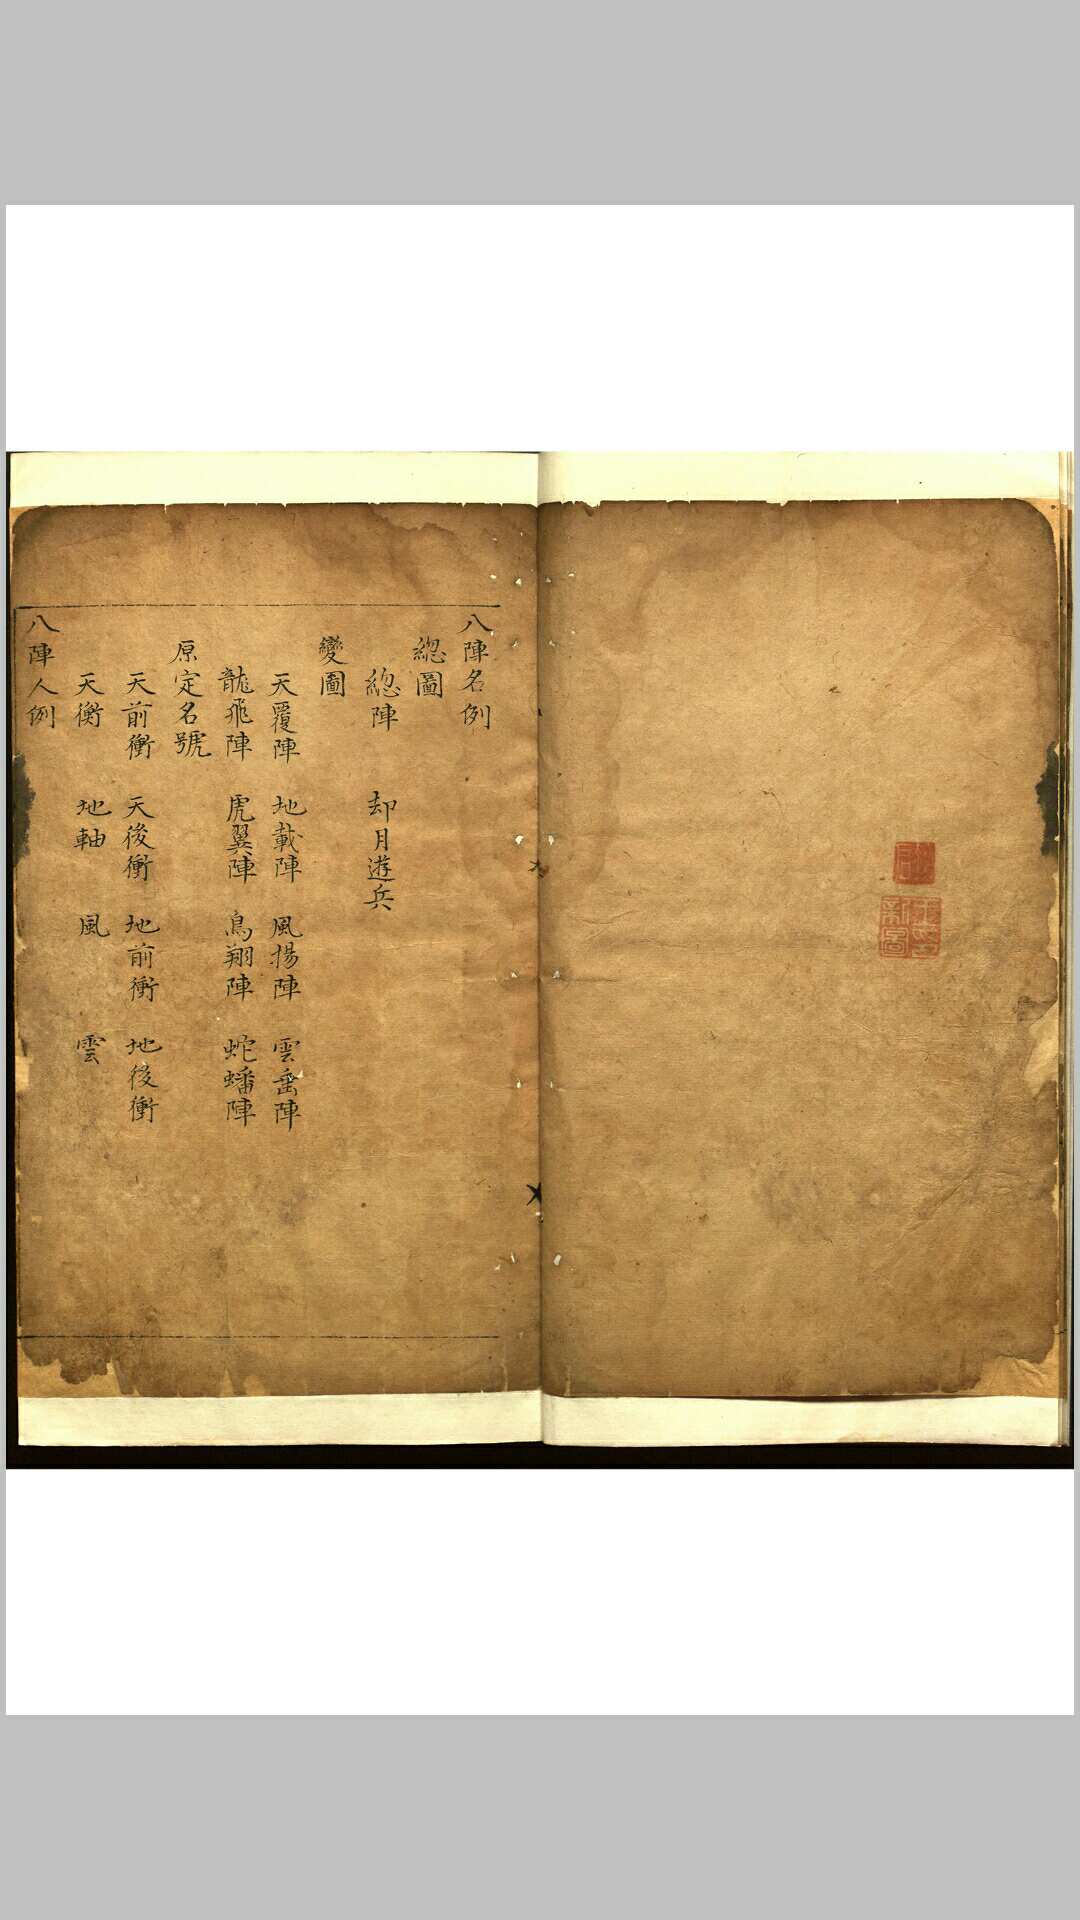 八陣名例
總圖
總陣 却月遊兵
變圖
天覆陣 地載陣 風揚陣 雲垂陣
龍飛陣 虎翼陣 鳥翔陣 蛇蟠陣
原定名號
天前衝 天後衝 地前衝 地後衝
天衡 地軸 風 雲
八陣人例